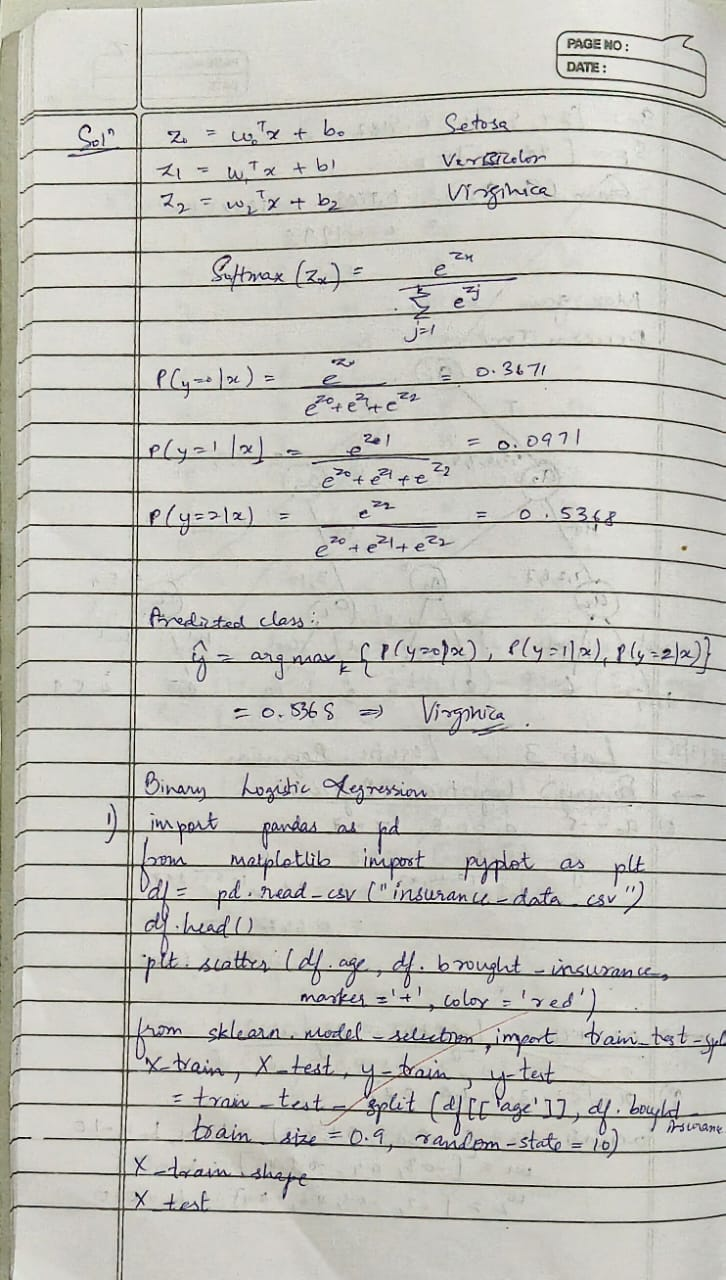 PAGE NO :
DATE :
Solⁿ z₀ = w₀ᵀx + b₀ Setosa
z₁ = w₁ᵀx + b₁ Versicolor
z₂ = w₂ᵀx + b₂ Virginica
Softmax (zₓ) = e^zₓ / Σ_{j=1}^{k} e^zj
P(y=0|x) = e^z₀ / e^z₀ + e^z₁ + e^z₂ = 0.3671
P(y=1|x] = e^z₁ / e^z₀ + e^z₁ + e^z₂ = 0.0971
P(y=2|x) = e^z₂ / e^z₀ + e^z₁ + e^z₂ = 0.5368
Predicted class:
ŷ = arg max_k { P(y=0|x), P(y=1|x), P(y=2|x)}
= 0.5368 ⇒ Virginica.
Binary Logistic Regression
1) import pandas as pd
from matplotlib import pyplot as plt
df = pd.read_csv ("insurance_data.csv")
df.head()
plt.scatter (df.age, df.brought_insurance,
marker = '+', color = 'red')
from sklearn.model_selection import train_test_spl
X_train, X_test, y_train, y_test
= train_test_split (df[['age']], df.bought_insurance
train_size = 0.9, random_state = 10)
X_train.shape
X_test